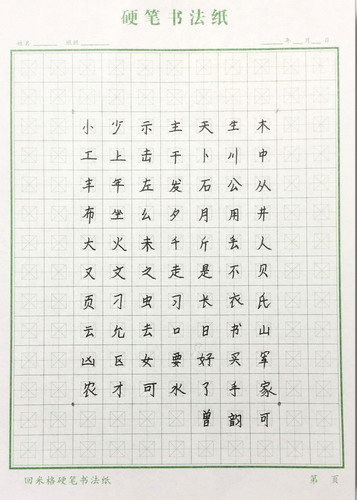 硬笔书法纸
姓名 班级 年 月 日
小 少 示 主 天 生 木
工 上 击 干 卜 川 中
丰 年 左 发 石 公 从
布 坐 么 夕 月 用 井
大 火 未 千 斤 丢 人
又 文 之 走 是 不 贝
页 刁 虫 习 长 衣 氏
云 允 去 口 日 书 山
凶 区 女 要 好 买 军
农 才 可 水 了 手 家
曾 韵 可
回米格硬笔书法纸 第 页